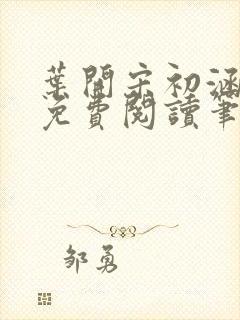 葉開宋初涵
免費閱讀筆
邹勇